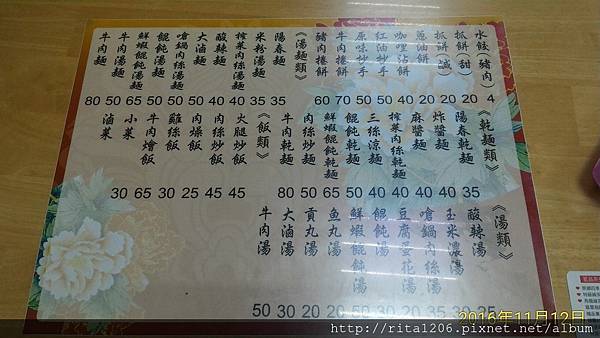 水餃(豬肉) 4
抓餅(甜) 20
抓餅(鹹) 20
蔥油餅 20
咖哩沾餅 40
紅油抄手 50
原味抄手 50
牛肉捲餅 70
豬肉捲餅 60
《湯麵類》
陽春麵 35
米粉湯麵 35
榨菜肉絲湯麵 40
酸辣麵 40
大滷麵 50
嗆鍋肉絲湯麵 50
餛飩湯麵 50
鮮蝦餛飩湯麵 65
牛肉湯麵 50
牛肉麵 80
《乾麵類》
陽春乾麵 35
炸醬麵 40
麻醬麵 40
榨菜肉絲乾麵 40
三絲涼麵 40
餛飩乾麵 50
鮮蝦餛飩乾麵 65
肉絲炒麵 50
牛肉乾麵 80
《飯類》
火腿炒飯 45
肉絲炒飯 45
肉燥飯 25
雞絲飯 30
牛肉燴飯 65
小菜 30
滷菜
《湯類》
酸辣湯 25
玉米濃湯 30
嗆鍋肉絲湯 35
豆腐蛋花湯 30
餛飩湯 30
鮮蝦餛飩湯 50
魚丸湯 20
貢丸湯 20
大滷湯 30
牛肉湯 50
2016年11月12日
http://rita1206.pixnet.net/album